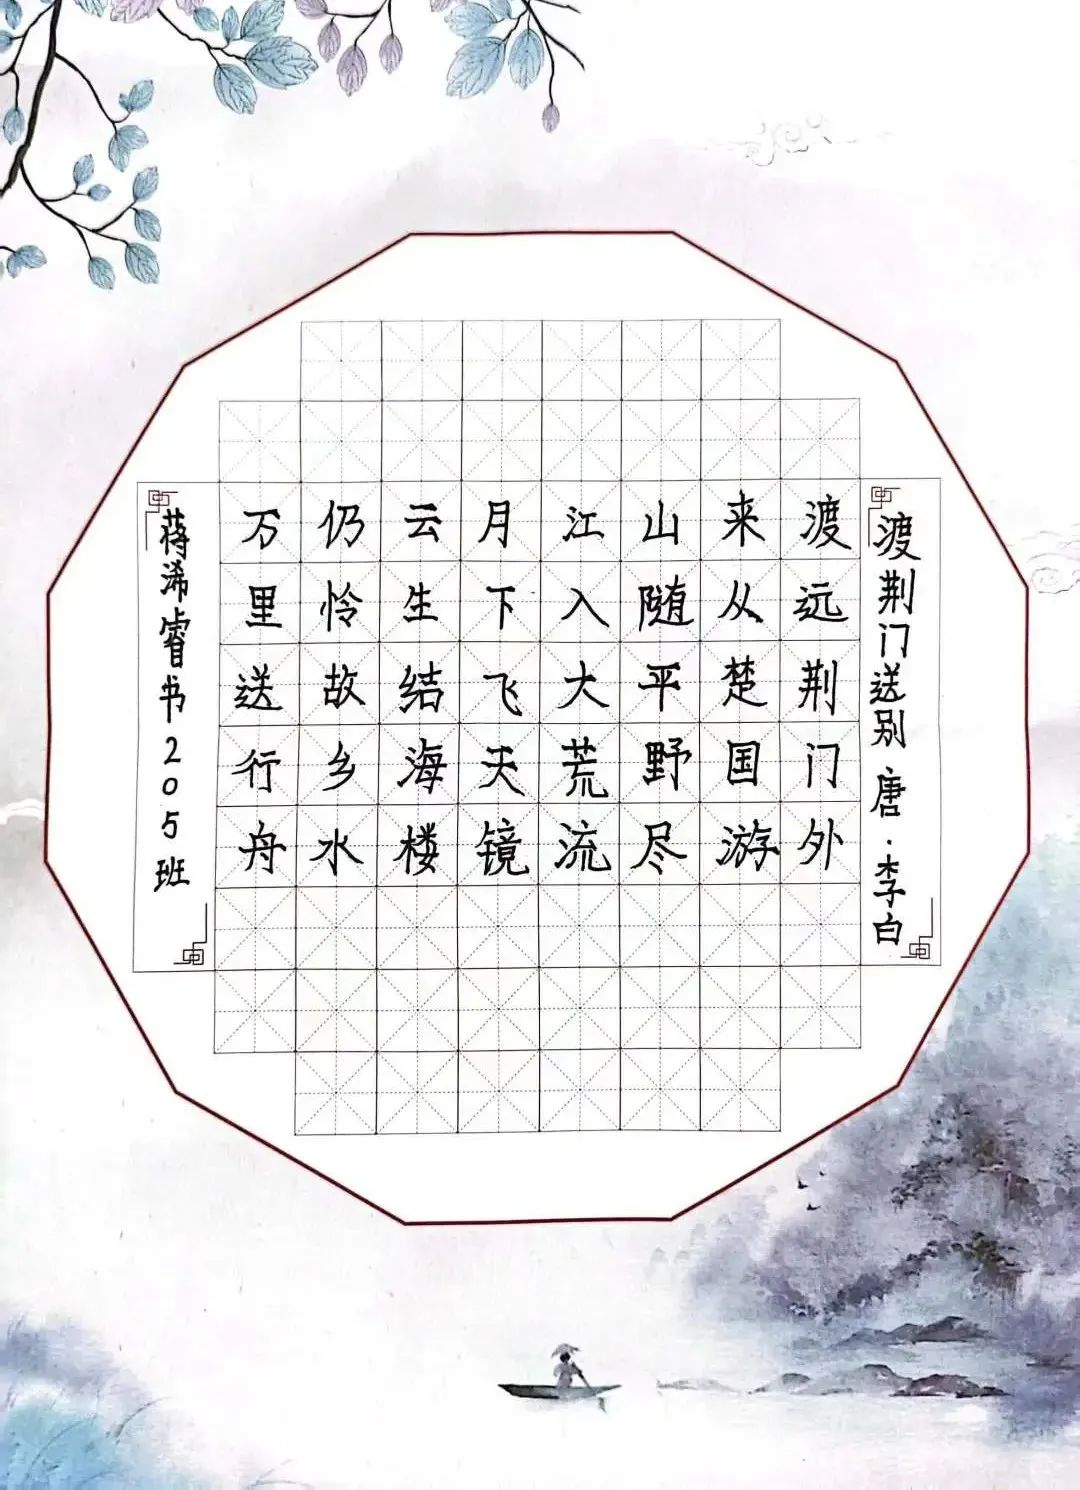 渡荆门送别 唐·李白
渡远荆门外
来从楚国游
山随平野尽
江入大荒流
月下飞天镜
云生结海楼
仍怜故乡水
万里送行舟
蒋浠睿书205班